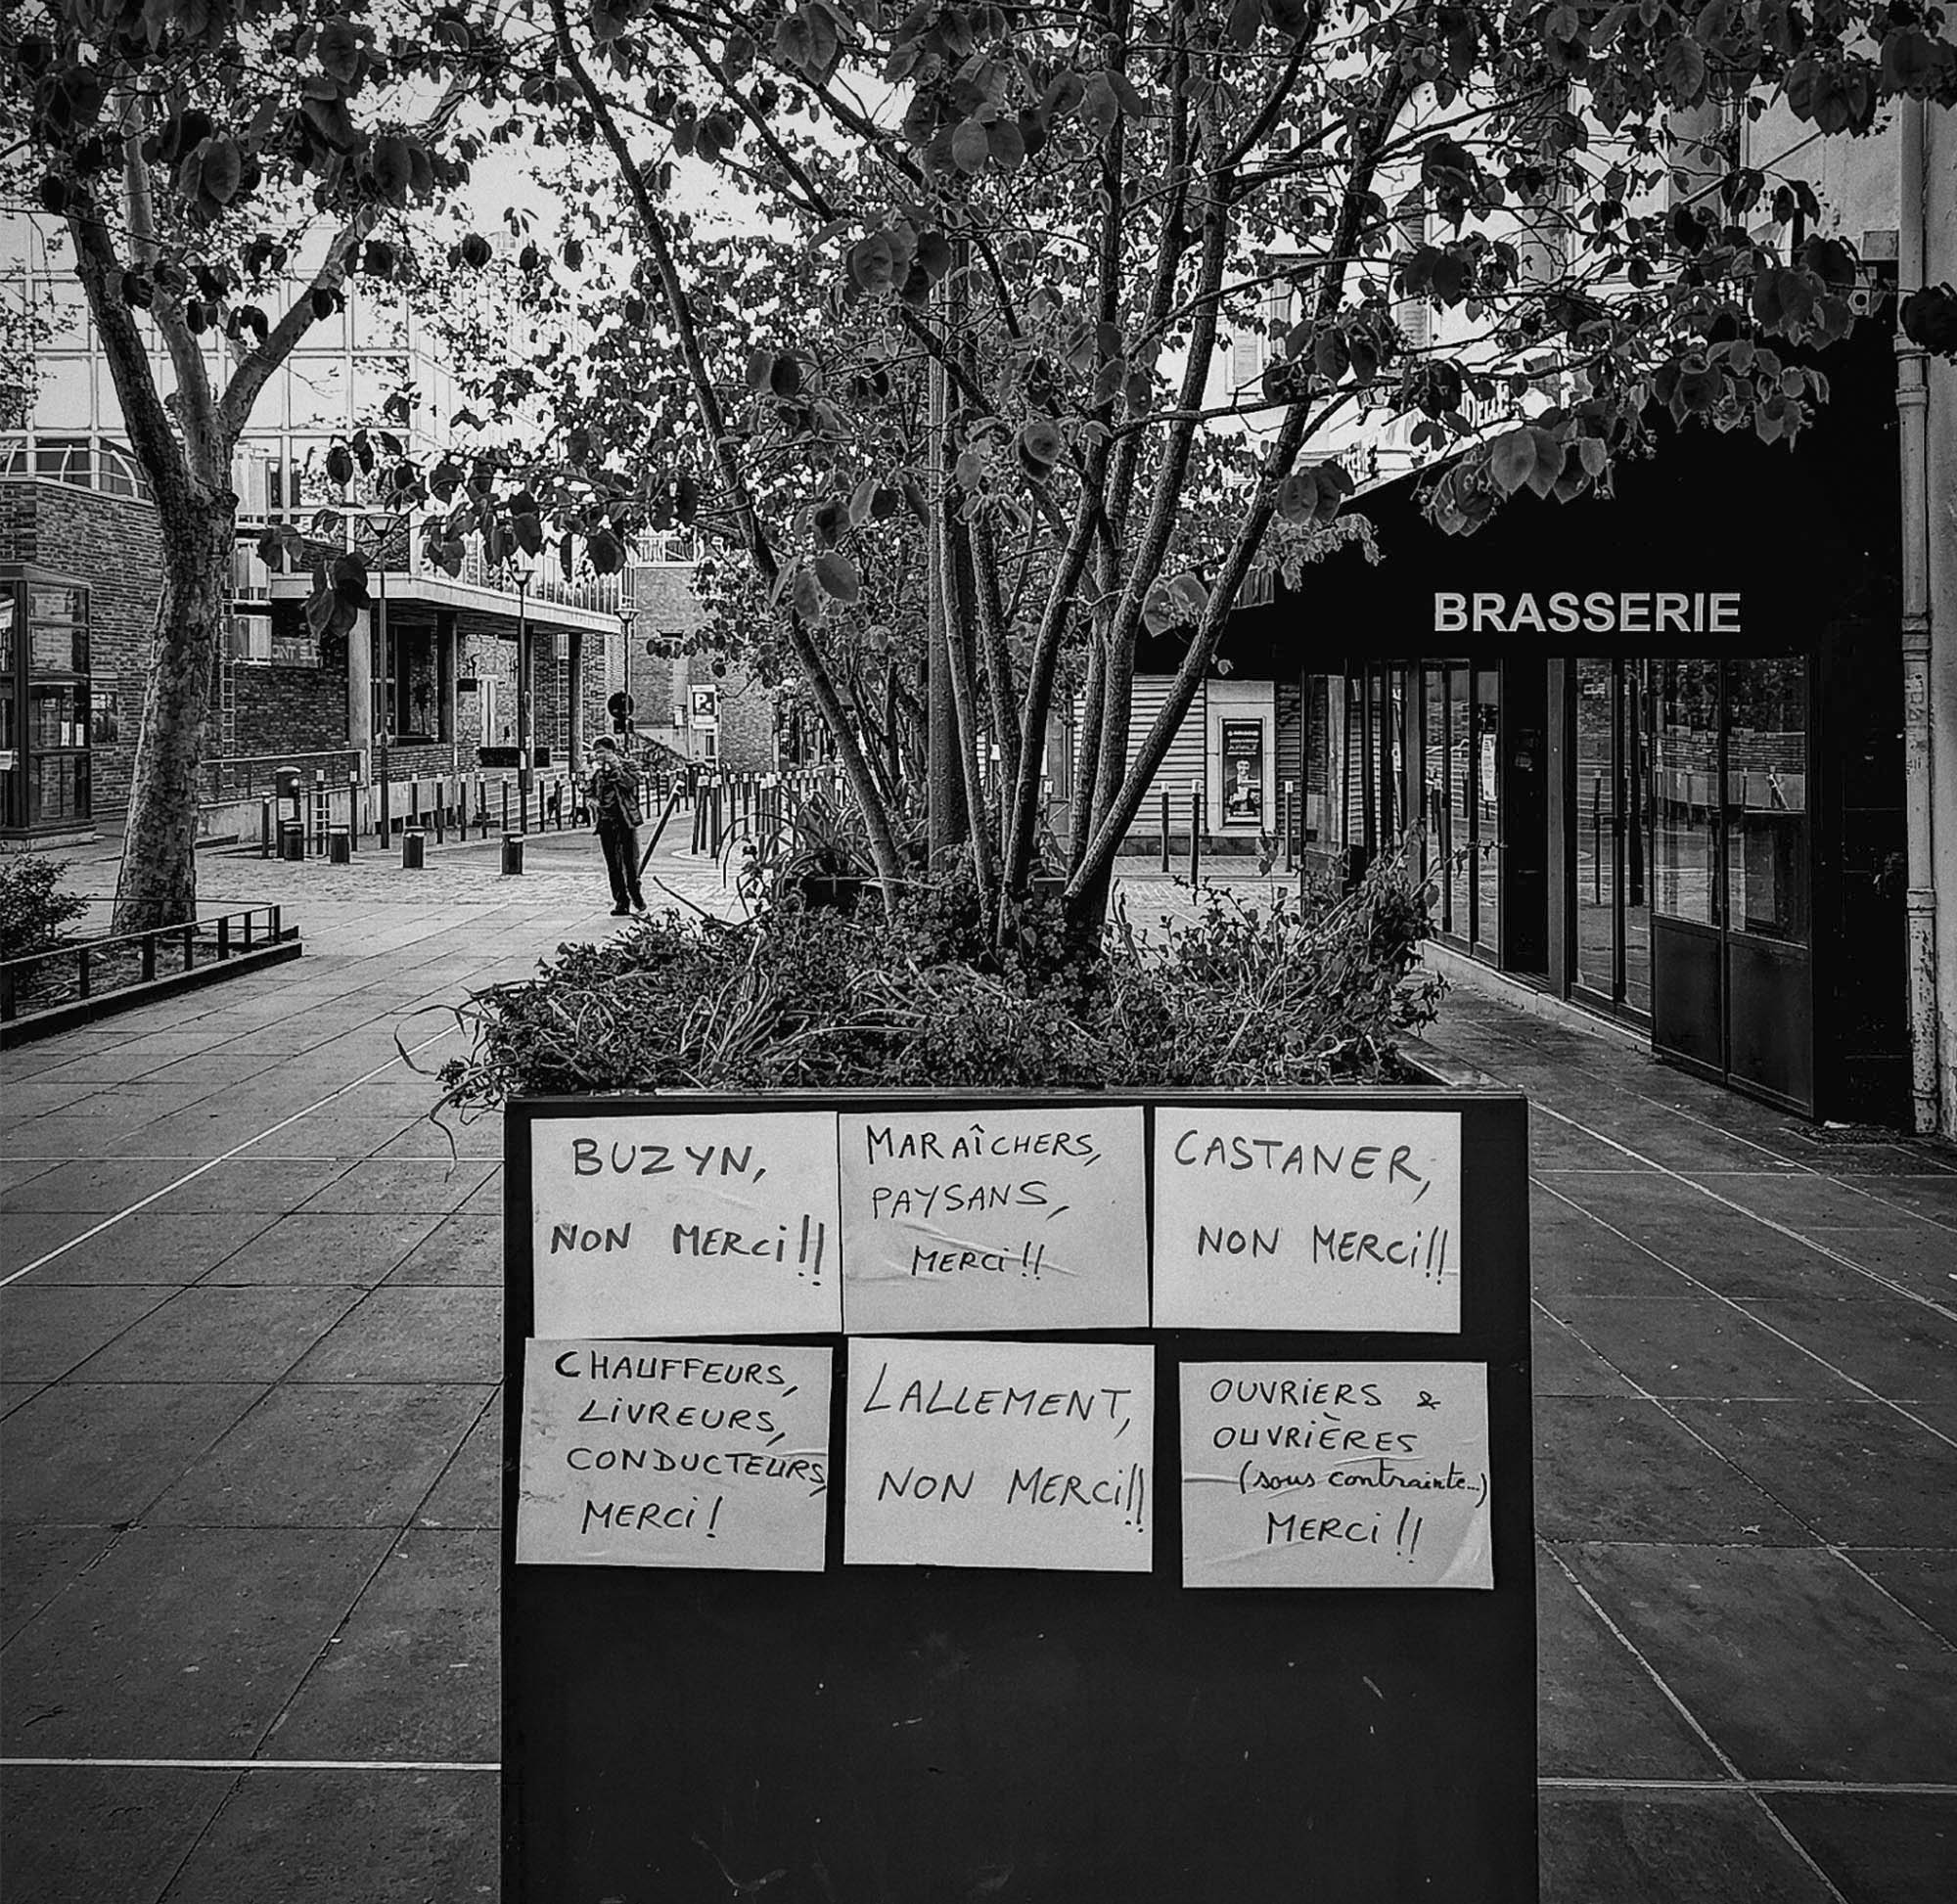 BRASSERIE
P
BUZYN,
NON MERCi!!
MARAÎCHERS,
PAYSANS,
MERCi!!
CASTANER,
NON MERCi!!
CHAUFFEURS,
LiVREURS,
CONDUCTEURS,
MERCi!
LALLEMENT,
NON MERCi!!
OUVRiERS &
OUVRIÈRES
(sous contrainte...)
MERCi!!